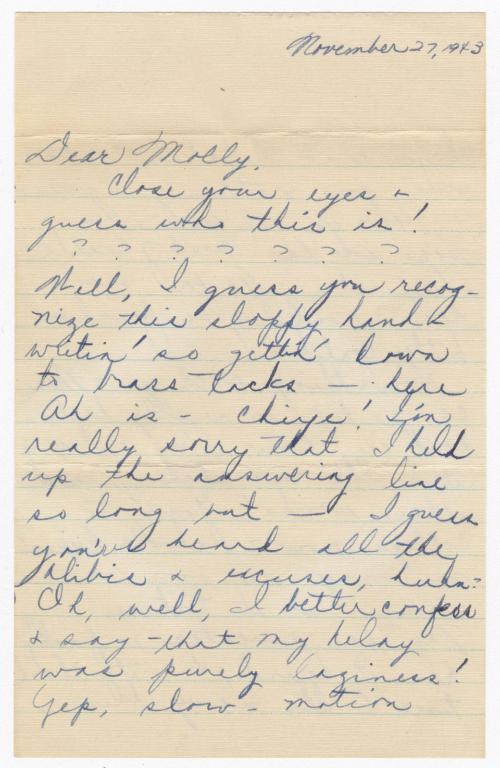 November 27, 1943
Dear Molly,
Close your eyes &
guess who this is!
? ? ? ? ? ? ?
Well, I guess you recog-
nize this sloppy hand-
writin' so gettin' down
to brass-tacks — here
Ah is - Chiye! I'm
really sorry that I held
up the answering line
so long but — I guess
you've heard all the
alibis & excuses, huh?
Oh, well, I better confess
& say - that my delay
was purely laziness!
Yep, slow-motion